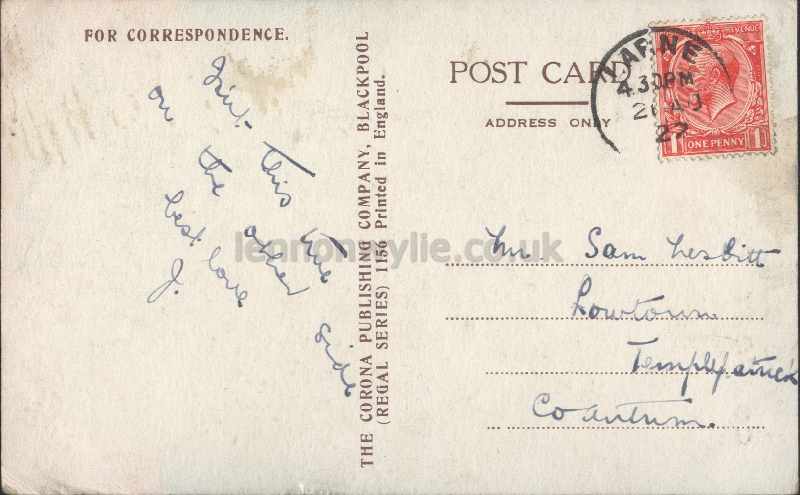 FOR CORRESPONDENCE.
Isint this true
on the other side
best love
J.
THE CORONA PUBLISHING COMPANY, BLACKPOOL
(REGAL SERIES) 1156 Printed in England.
POST CARD
ADDRESS ONLY
LARNE
4.30PM
21 AU
22
REVENUE
ONE PENNY
1 1
Mr. Sam Nesbitt
Lowtown
Templepatrick
Co Antrim.
lennonwylie.co.uk